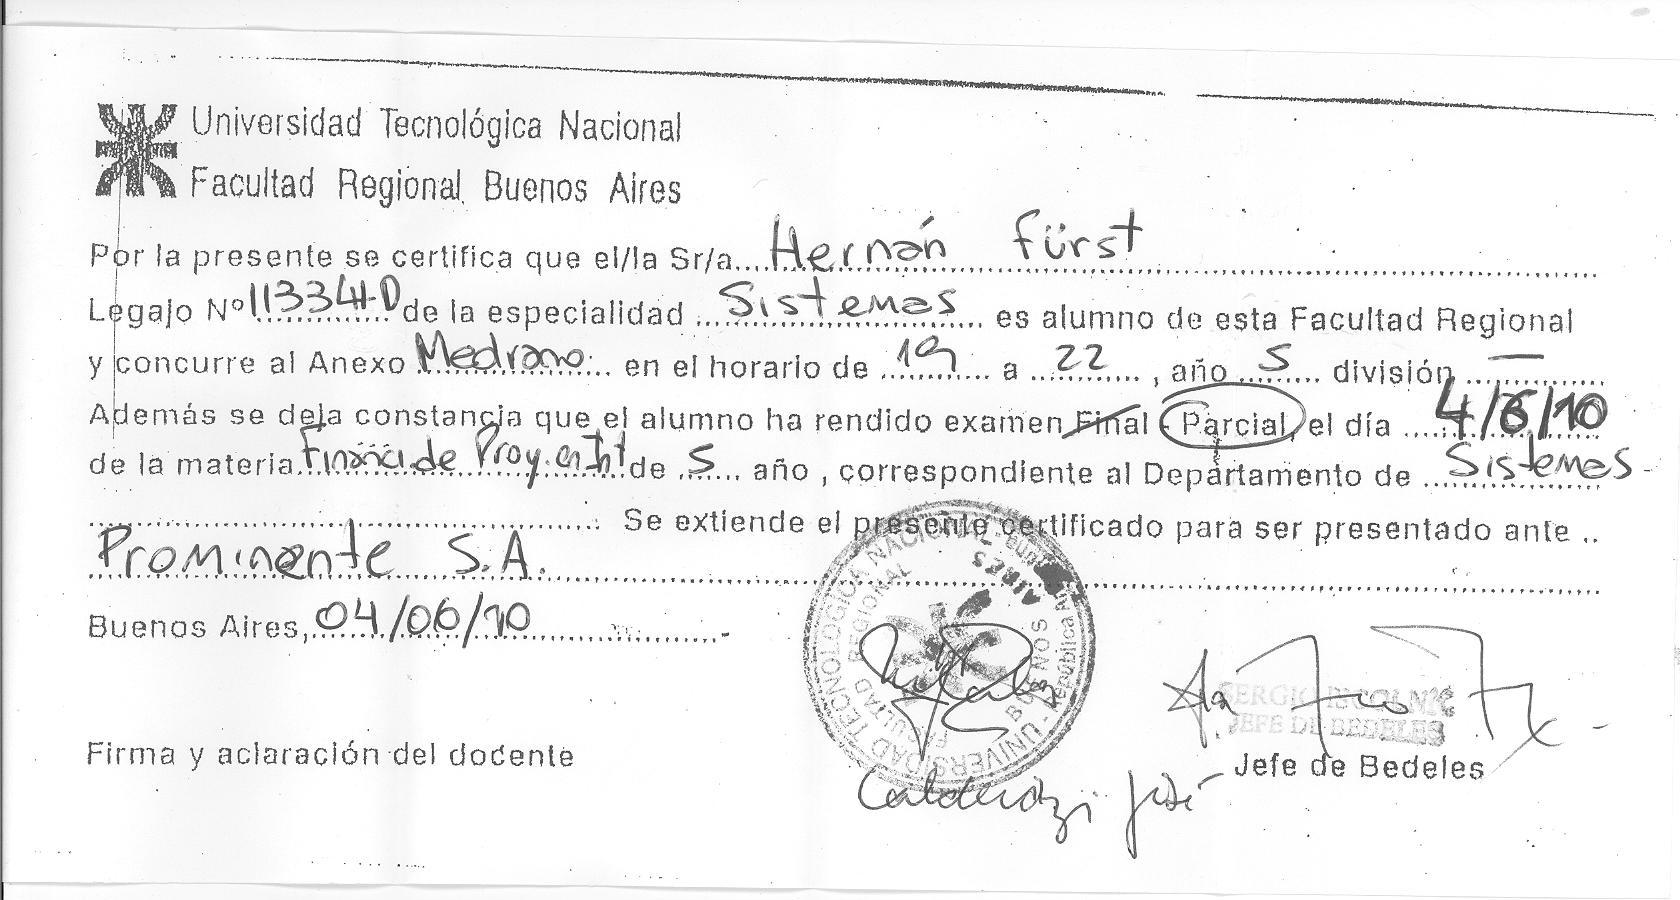 Universidad Tecnológica Nacional
Facultad Regional Buenos Aires
Por la presente se certifica que el/la Sr/a.... Hernán Fürst
Legajo Nº 113341-D de la especialidad Sistemas es alumno de esta Facultad Regional
y concurre al Anexo Medrano en el horario de 19 a 22, año 5 división —
Además se deja constancia que el alumno ha rendido examen Final - Parcial, el día 4/6/10
de la materia de Proy. de 5 año, correspondiente al Departamento de Sistemas
Se extiende el presente certificado para ser presentado ante ..
Prominente S.A.
Buenos Aires, 04/06/10
UNIVERSIDAD TECNOLÓGICA NACIONAL
FACULTAD REGIONAL
BUENOS AIRES
República
SERGIO
JEFE DE BEDELES
Firma y aclaración del docente
Jefe de Bedeles
José